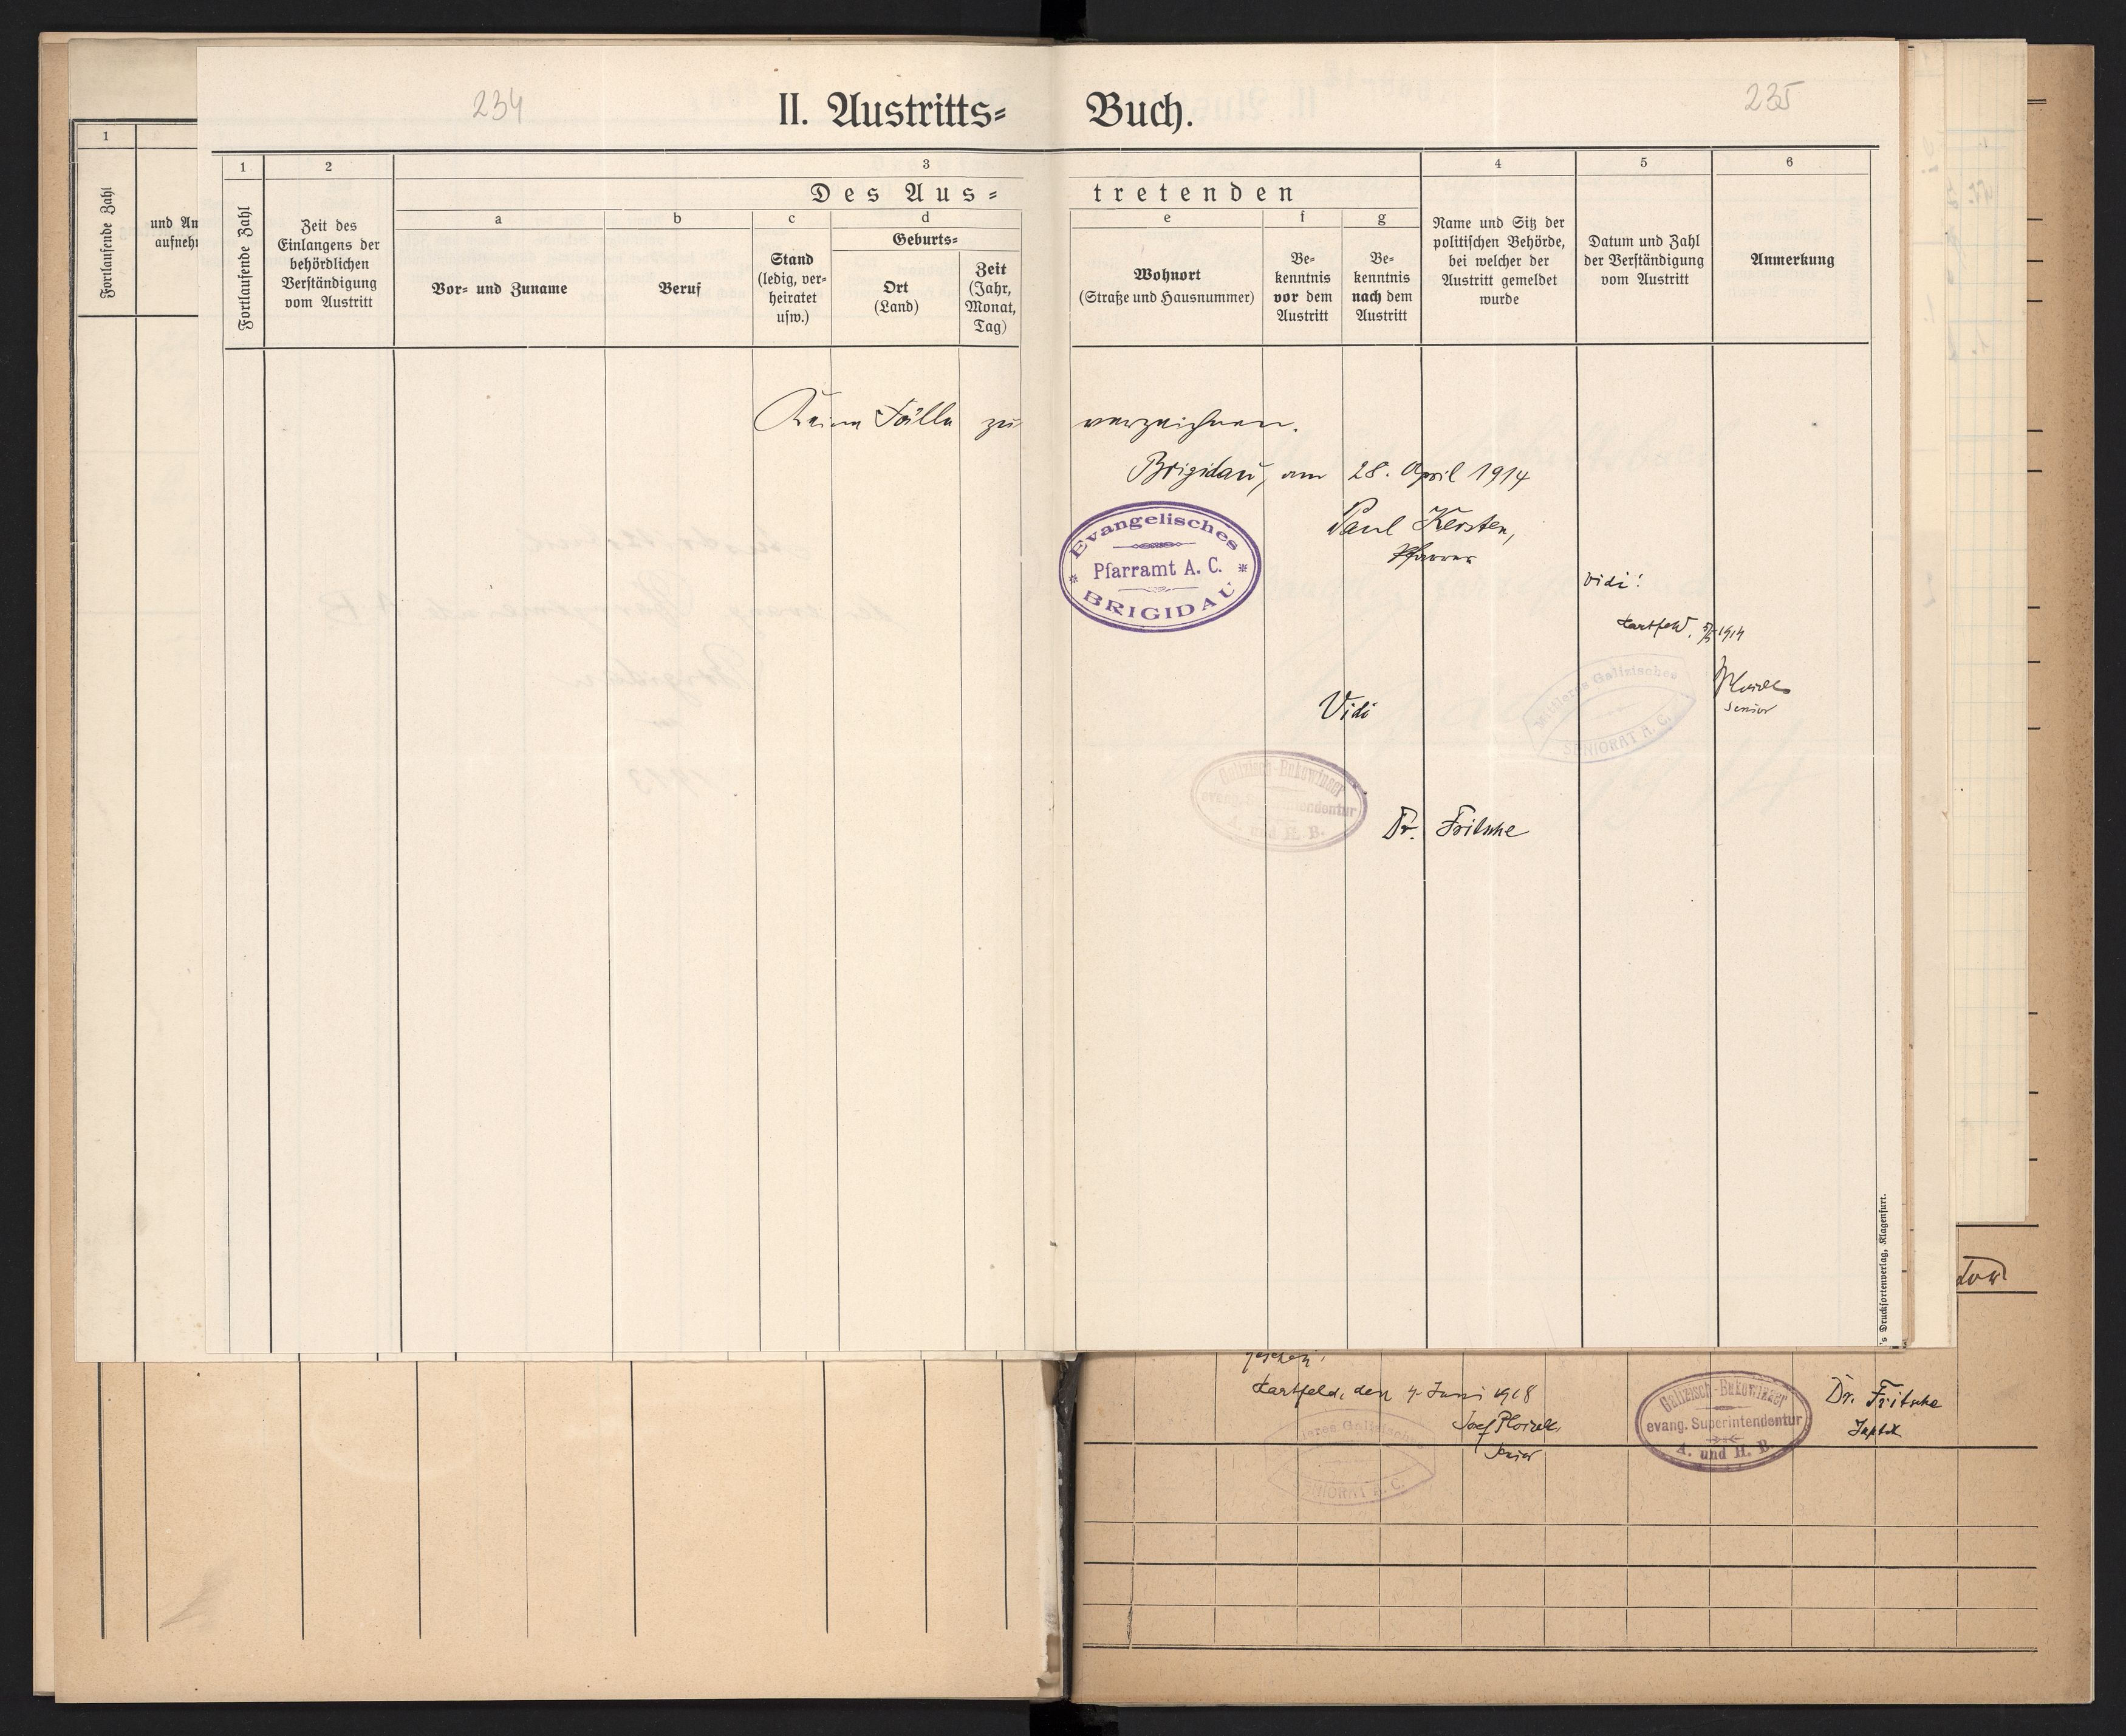 234
II. Austritts= Buch.
235
1
2
3
4
5
6
Des Aus= tretenden
a
b
c
d
e
f
g
Fortlaufende Zahl
Zeit des
Einlangens der
behördlichen
Verständigung
vom Austritt
Vor= und Zuname
Beruf
Stand
(ledig, ver=
heiratet
usw.)
Geburts=
Ort
(Land)
Zeit
(Jahr,
Monat,
Tag)
Wohnort
(Straße und Hausnummer)
Be=
kenntnis
vor dem
Austritt
Be=
kenntnis
nach dem
Austritt
Name und Sitz der
politischen Behörde,
bei welcher der
Austritt gemeldet
wurde
Datum und Zahl
der Verständigung
vom Austritt
Anmerkung
1
Fortlaufende Zahl
und An
aufneh
Keine Fälle zu verzeichnen.
Brigidau, am 28. April 1914
Paul Kersten,
Pfarrer
Evangelisches
Pfarramt A. C.
BRIGIDAU
Vidi!
Hartfeld, 1914
Senior
Mittleres Galizisches
SENIORAT A. C.
Vidi
Galizisch-Bukowinaer
evang. Superintendentur
A. und H. B.
Dr. Fritsche
's Drucksortenverlag, Klagenfurt.
Hartfeld, den 4. Juni 1918
Josef Ploizek
Senior
Galizisches
SENIORAT A. C.
Galizisch-Bukowinaer
evang. Superintendentur
A. und H. B.
Dr. Fritsche